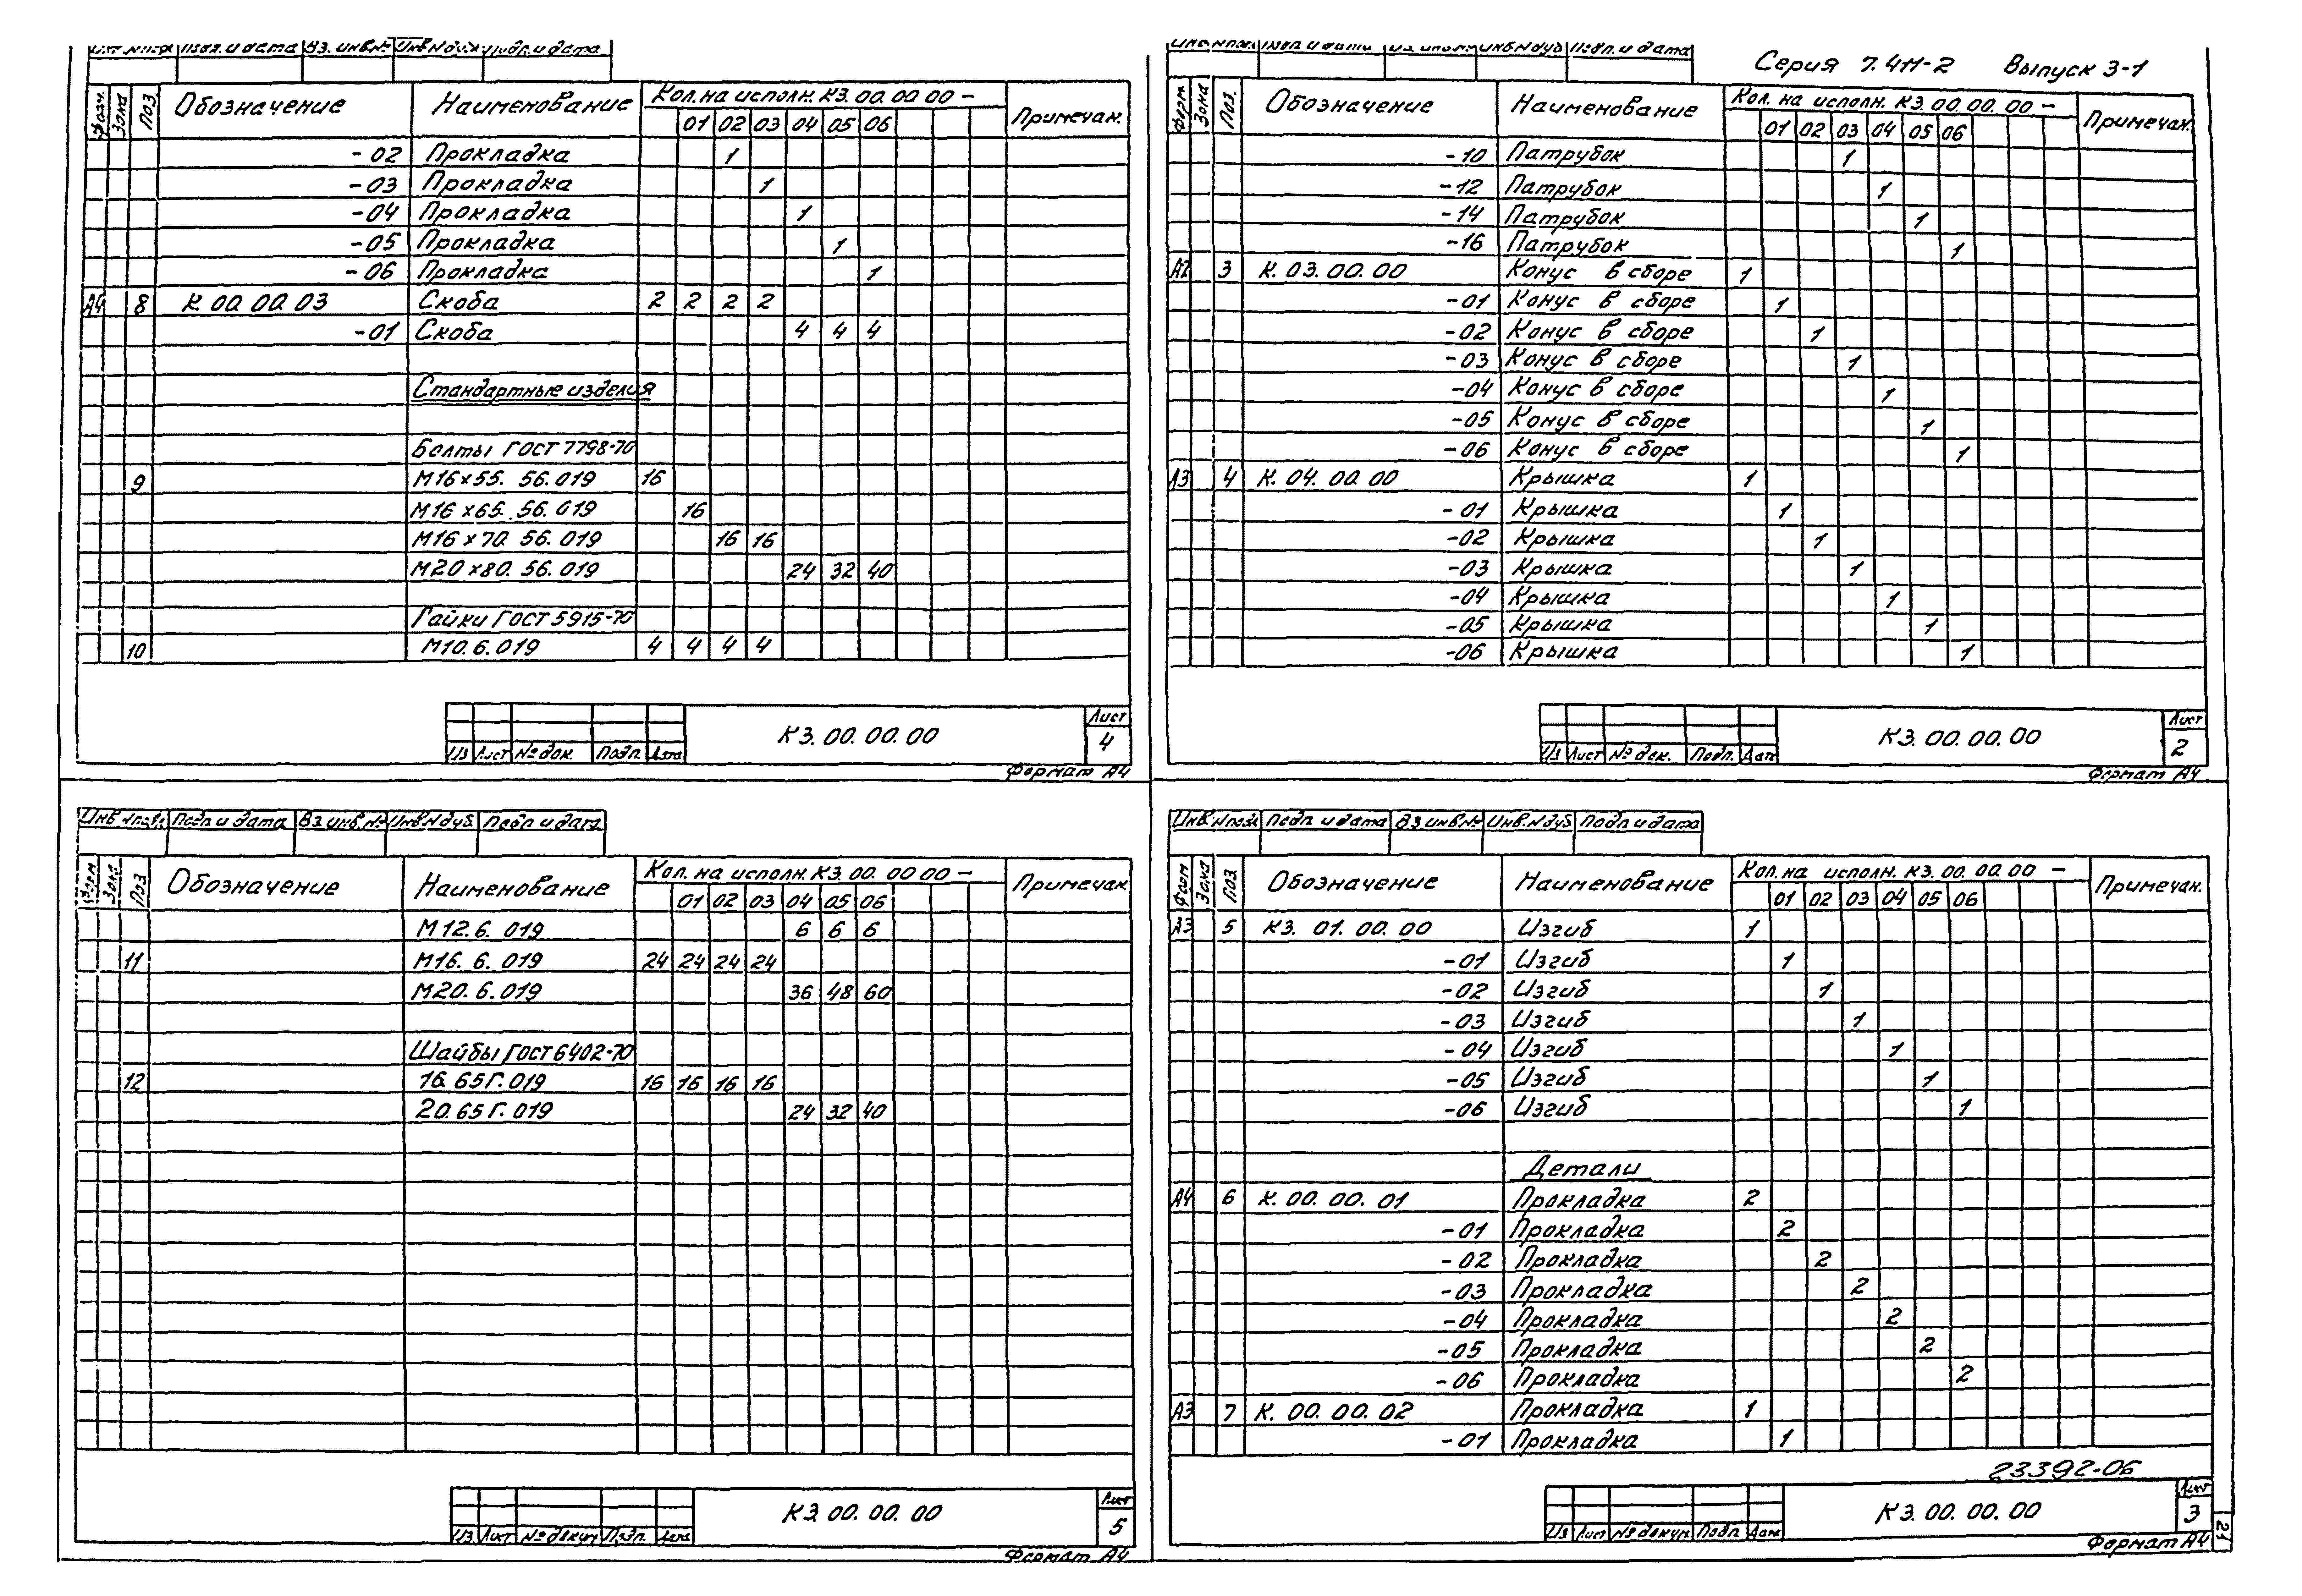 Подп. и дата Вз. инв.№ Инв.N дуб. Подп. и дата
Поз. Обозначение Наименование Кол. на исполн. К3. 00. 00 00 - Примечан.
01 02 03 04 05 06
-02 Прокладка 1
-03 Прокладка 1
-04 Прокладка 1
-05 Прокладка 1
-06 Прокладка 1
А4 8 К. 00. 00. 03 Скоба 2 2 2 2
-01 Скоба 4 4 4
Стандартные изделия
Болты ГОСТ 7798-70
9 М16×55. 56.019 16
М16×65. 56.019 16
М16×70. 56.019 16 16
М20×80. 56.019 24 32 40
Гайки ГОСТ 5915-70
10 М10.6.019 4 4 4 4
Из Лист № док. Подп. Дата К3. 00. 00. 00 Лист 4
Формат А4
Подп. и дата Вз. инв.№ Инв.N дуб. Подп. и дата
Серия 7.411-2 Выпуск 3-1
Форм. Зона Поз. Обозначение Наименование Кол. на исполн. К3. 00. 00. 00 - Примечан.
01 02 03 04 05 06
-10 Патрубок 1
-12 Патрубок 1
-14 Патрубок 1
-16 Патрубок 1
А2 3 К. 03. 00. 00 Конус в сборе 1
-01 Конус в сборе 1
-02 Конус в сборе 1
-03 Конус в сборе 1
-04 Конус в сборе 1
-05 Конус в сборе 1
-06 Конус в сборе 1
А3 4 К. 04. 00. 00 Крышка 1
-01 Крышка 1
-02 Крышка 1
-03 Крышка 1
-04 Крышка 1
-05 Крышка 1
-06 Крышка 1
Из Лист № док. Подп. Дат К3. 00. 00. 00 Лист 2
Формат А4
Подп. и дата Вз. инв.№ Инв.N дуб. Подп. и дата
Зона Поз Обозначение Наименование Кол. на исполн. К3. 00. 00 00 - Примечан.
01 02 03 04 05 06
М12.6. 019 6 6 6
11 М16. 6. 019 24 24 24 24
М20. 6. 019 36 48 60
Шайбы ГОСТ 6402-70
12 16. 65Г. 019 16 16 16 16
20. 65Г. 019 24 32 40
Из. Лист № докум Подп. Дата К3. 00. 00. 00 Лист 5
Формат А4
Инв.N подл. Подп. и дата Вз. инв.№ Инв.N дуб Подп. и дата
Форм Зона Поз Обозначение Наименование Кол. на исполн. К3. 00. 00. 00 - Примечан.
01 02 03 04 05 06
А3 5 К3. 01. 00. 00 Изгиб 1
-01 Изгиб 1
-02 Изгиб 1
-03 Изгиб 1
-04 Изгиб 1
-05 Изгиб 1
-06 Изгиб 1
Детали
А4 6 К. 00. 00. 01 Прокладка 2
-01 Прокладка 2
-02 Прокладка 2
-03 Прокладка 2
-04 Прокладка 2
-05 Прокладка 2
-06 Прокладка 2
А3 7 К. 00. 00. 02 Прокладка 1
-01 Прокладка 1
23392-06
Из Лист № докум Подп Дата К3. 00. 00. 00 Лист 3
Формат А4
21